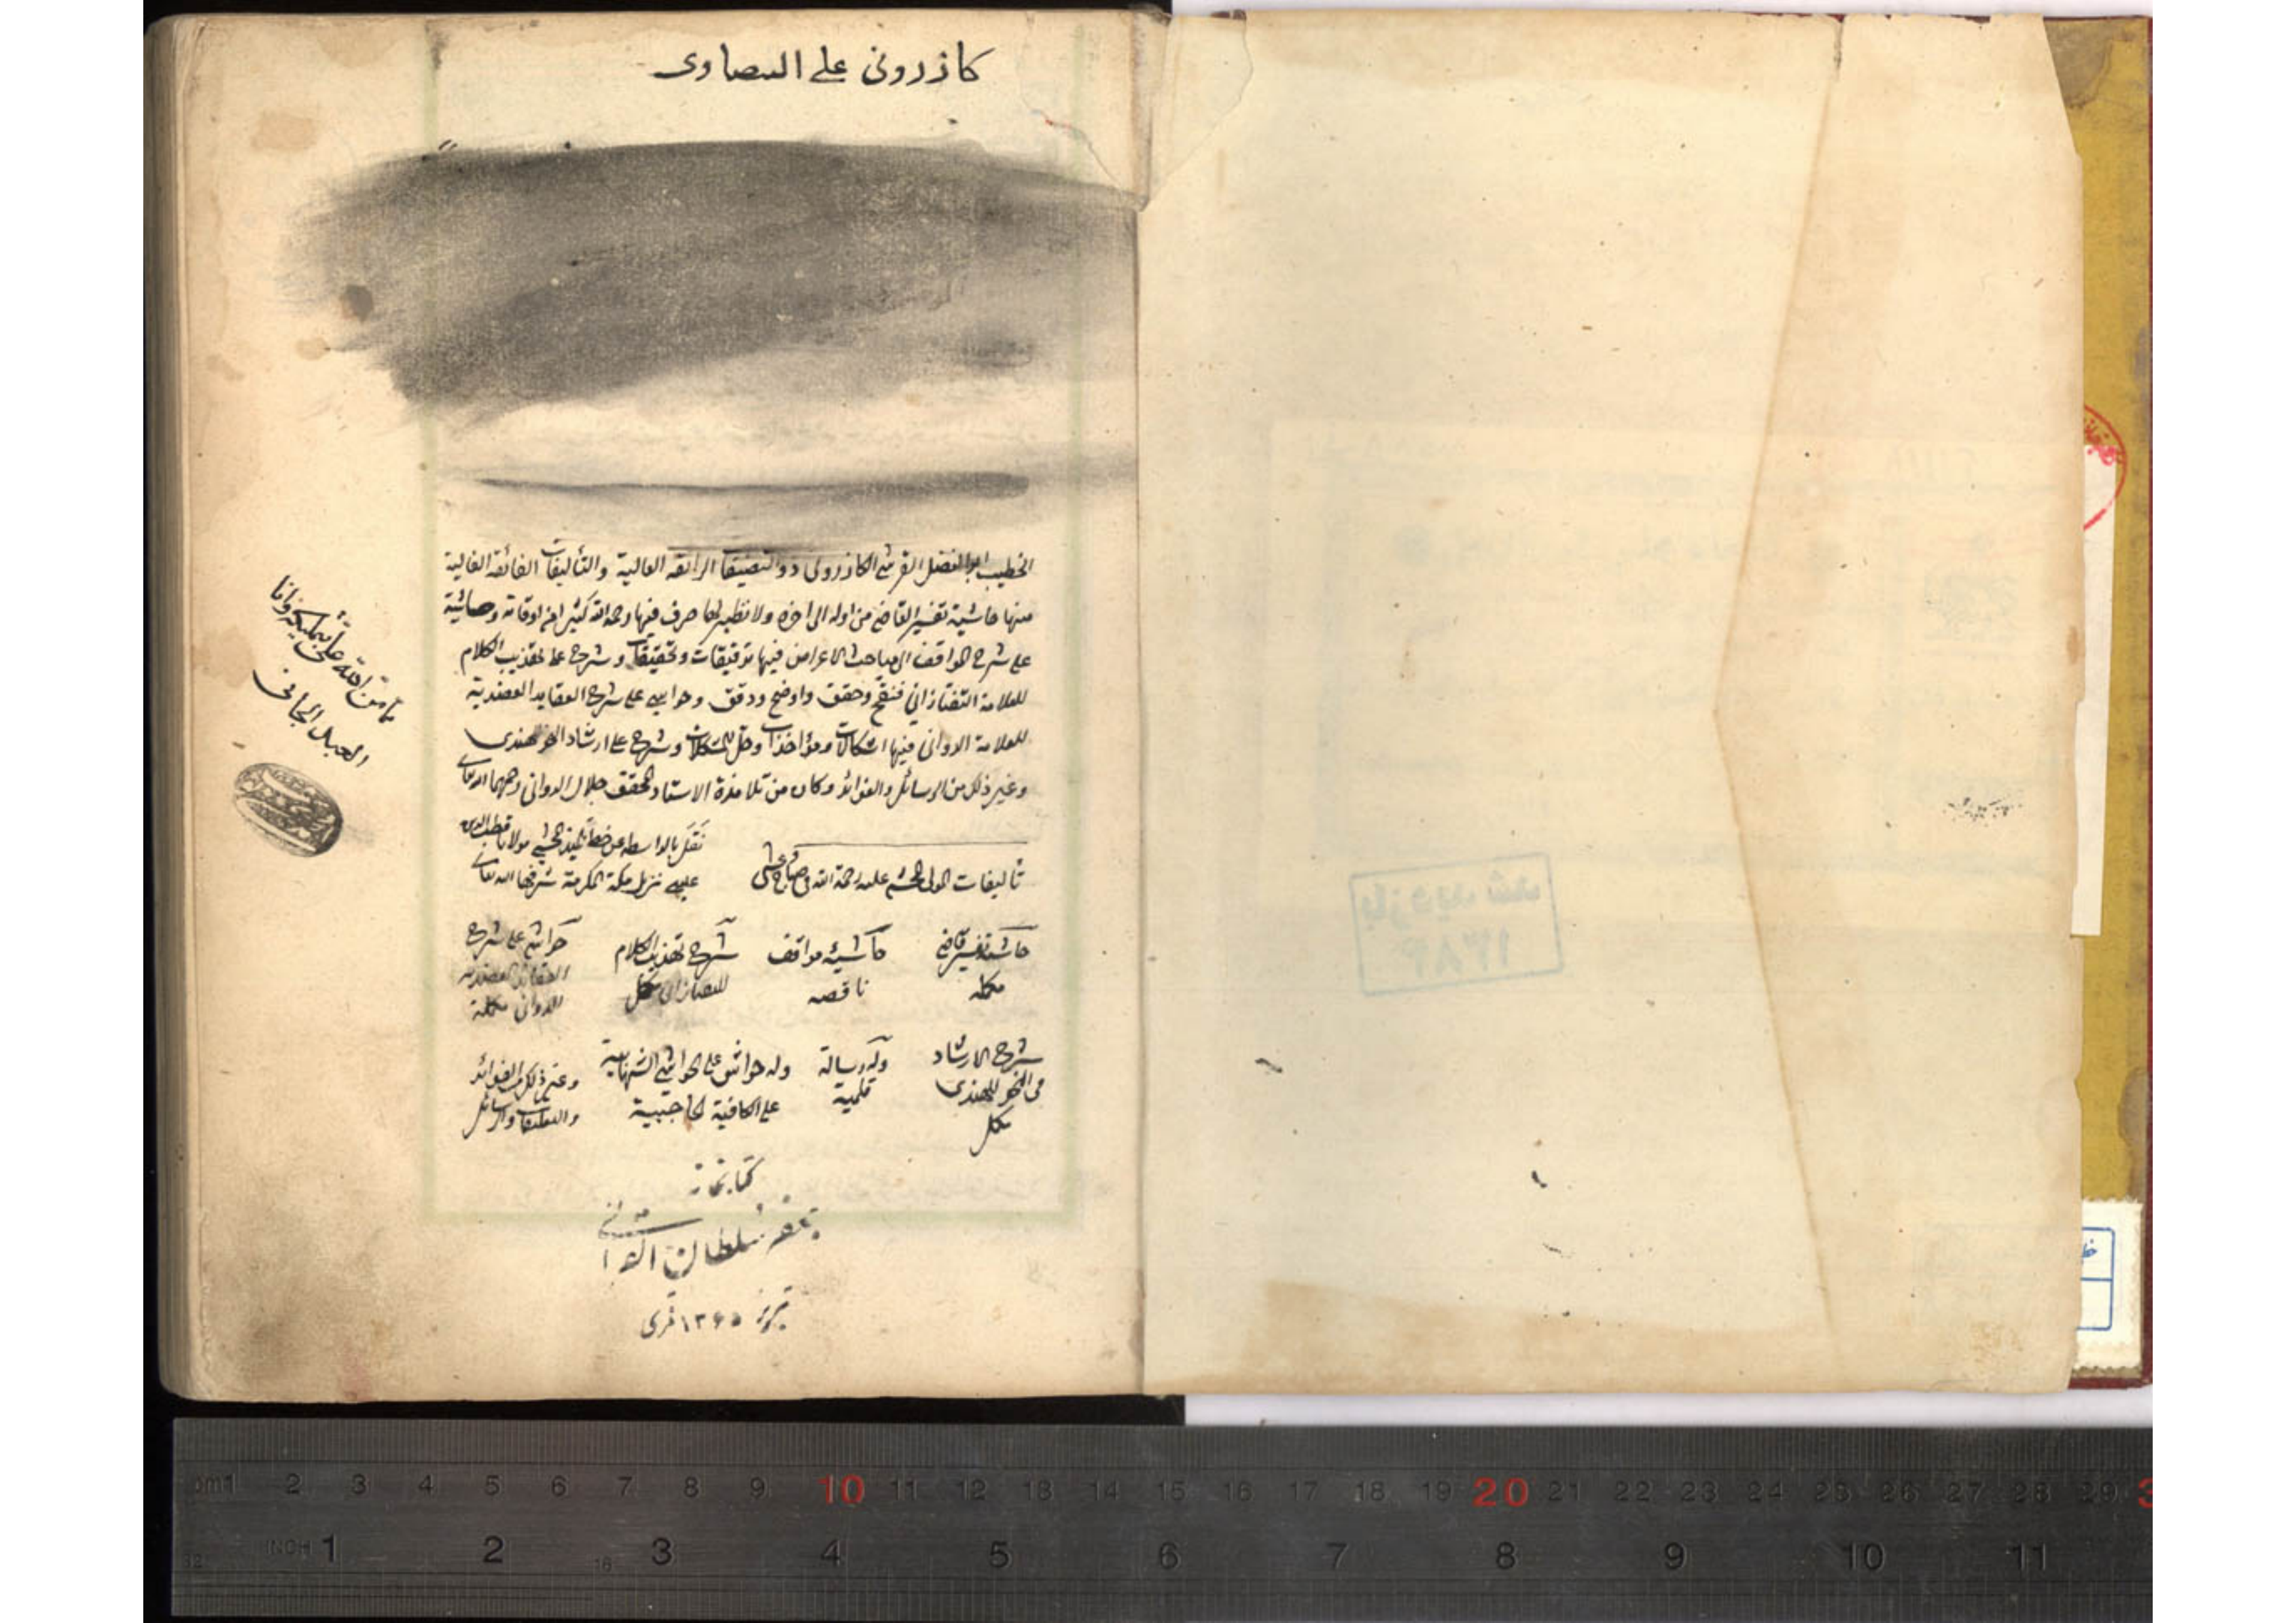 کازرونی علی البیضاوی
الخطیب ابو الفضل القرشی الکازرونی ذو التصنیفات الرائقة العالیة والتألیفات الفائقة الغالیة
منها حاشیة تفسیر القاضی من اوله الی اخره ولا نظیر لها صرف فیها رحمه الله کثیرا من اوقاته وحاشیة
علی شرح المواقف الی مباحث الاعراض فیها تدقیقات وتحقیقات وشرح علی تهذیب الکلام
للعلامة التفتازانی فنقح وحقق واوضح ودقق وحواشی علی شرح العقاید العضدیة
للعلامة الدوانی فیها اشکالات ومؤاخذات وحل المشکلات وشرح علی ارشاد النحو للهندی
وغیر ذلک من الرسائل والفوائد وکان من تلامذة الاستاد المحقق جلال الدوانی رحمهما الله تعالی
نقل بالواسطه عن خط تلمیذ المحشی مولانا قطب الدین
عیسی نزیل مکة المکرمة شرفها الله تعالی
تالیفات المولی المحشی علیه رحمة الله
حاشیة تفسیر قاضی
مکمله
حاشیة مواقف
ناقصه
شرح تهذیب الکلام
للتفتازانی مکمل
حواشی علی شرح
العقائد العضدیه
للدوانی مکملة
شرح الارشاد
فی النحو للهندی
مکمل
وله رسالة
قلمیة
وله حواش علی الحواشی الشهابیة
علی الکافیة الحاجبیة
وغیر ذلک من الفوائد
والتعلیقات والرسائل
کتابخانه
جعفر سلطان القرائی
تبریز ۱۳۶۵ قمری
مما من الله علی بتملیکه وانا
العبد الجانی
بازدید شد
۱۳۸۴